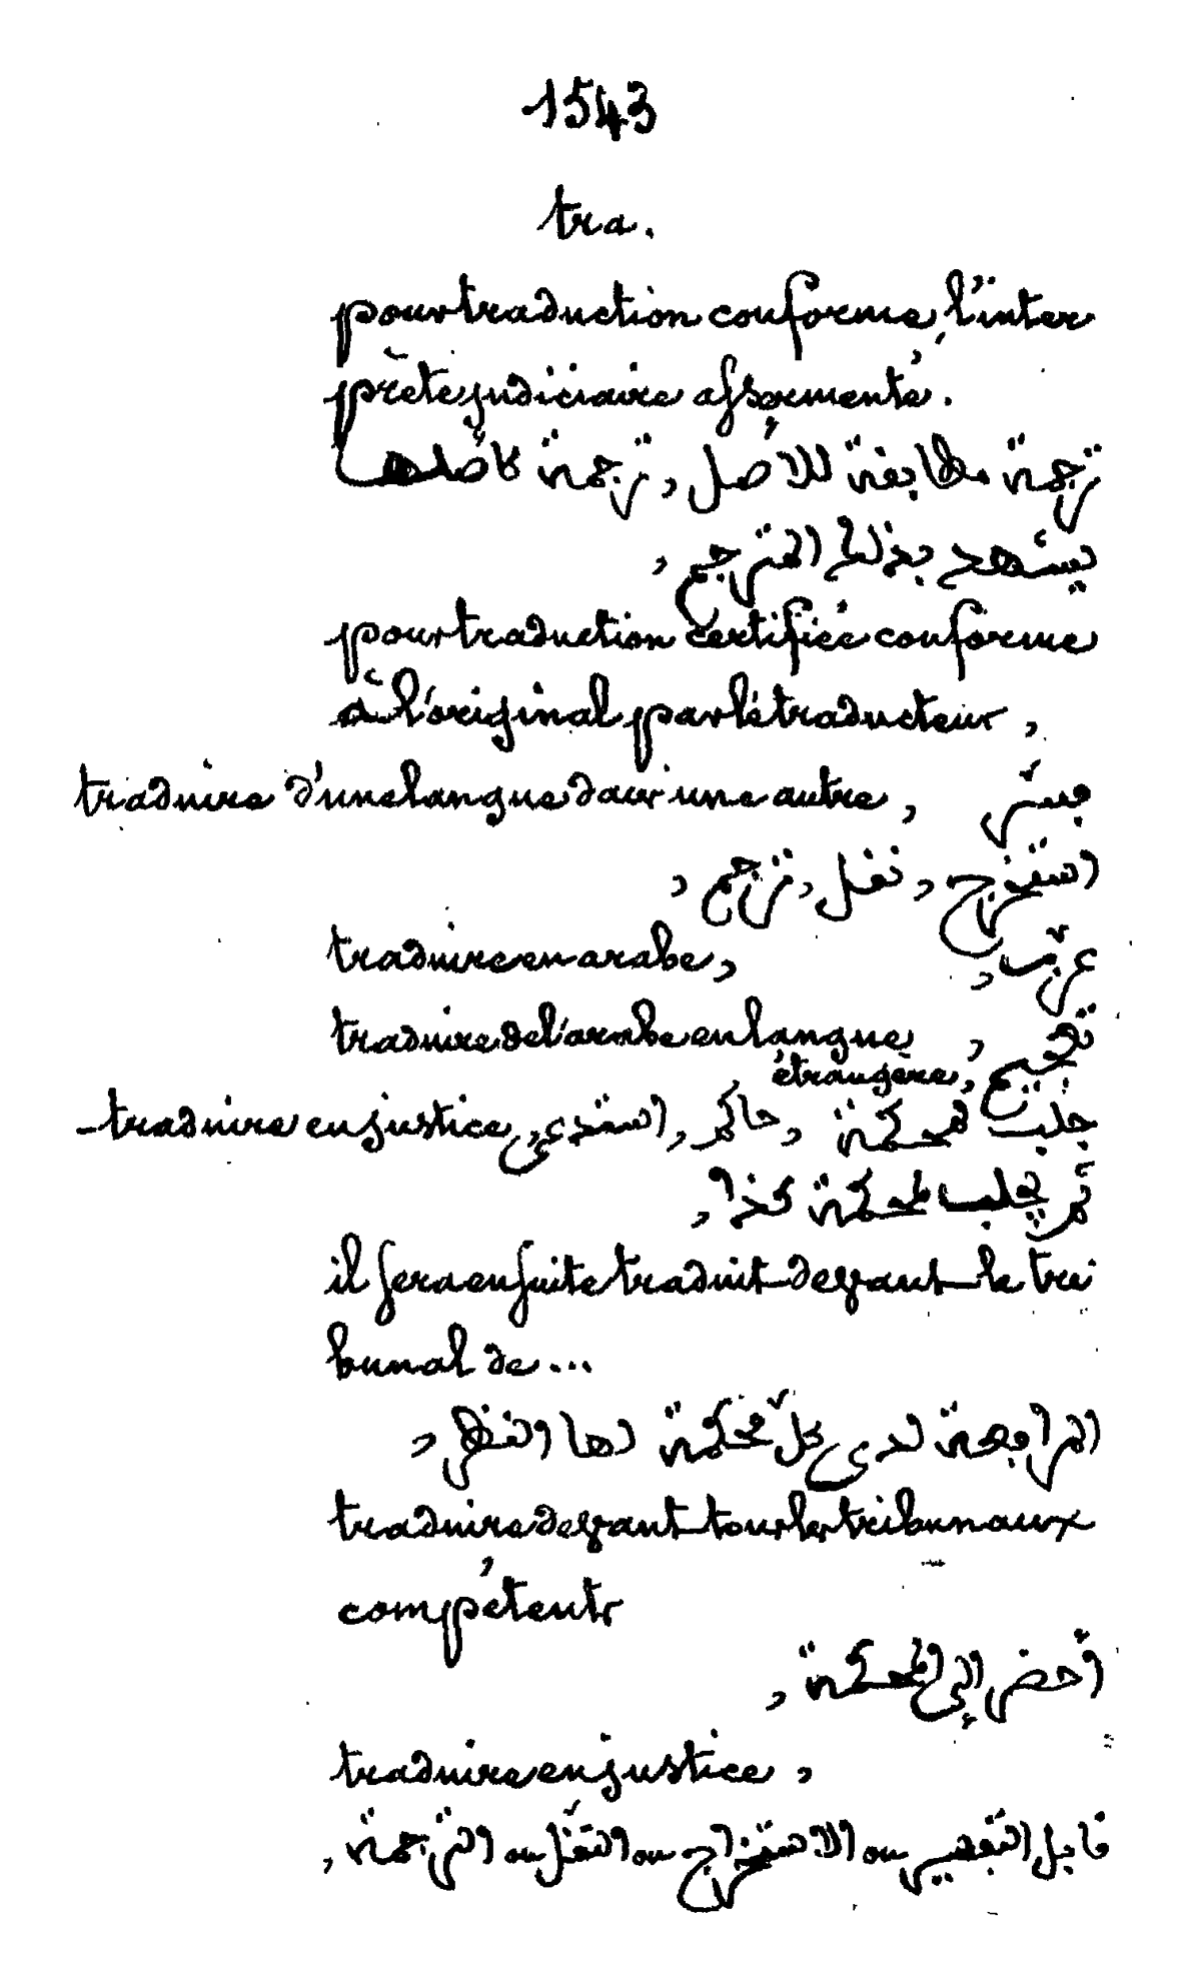 1543
tra.
pour traduction conforme, l'inter
prète judiciaire assermenté.
ترجمة مطابقة للاصل, ترجمة كأصلها
يشهد بذلك المترجم,
pour traduction certifiée conforme
à l'original par le traducteur,
traduire d'une langue dans une autre, فسّر
استخرج, نقل, ترجم,
traduire en arabe, عرّب,
traduire de l'arabe en langue étrangère, تعجيم,
-traduire en justice, جلب لمحكمة, حاكم, استدعى
ثم يجلب لمحكمة كذا,
il sera ensuite traduit devant le tri
bunal de...
المرافعة لدى كلّ محكمة لها النظر,
traduire devant tous les tribunaux
compétents
أحضر إلى المحكمة,
traduire en justice,
قابل التفسير ou الاستخراج ou النقل ou الترجمة,